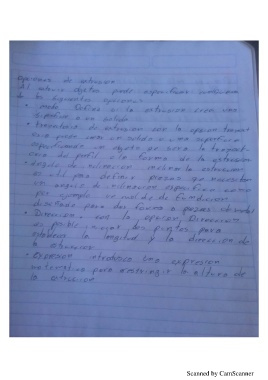 opciones de extrusion
Al extruir objetos puede especificar cualquiera
de las siguientes opciones:
• modo define si la extrusion crea una
superficie o un solido
• trayectoria de extrusion con la opcion trayec
toria puede crear un solido o una superficie
especificando un objeto que sera la trayect
oria del perfil o la forma de la extrusion
• angulo de inclinacion inclinar la extrusion
es util para definir piezas que necesitan
un angulo de inclinacion especifico como
por ejemplo un molde de fundicion
diseñado para dar forma a piezas
• Direccion con la opcion Direccion
es posible designar dos puntos para
establecer la longitud y la direccion de
la extrusion
• Expresion introduzca una expresion
matematica para restringir la altura de
la extrusion
Scanned by CamScanner